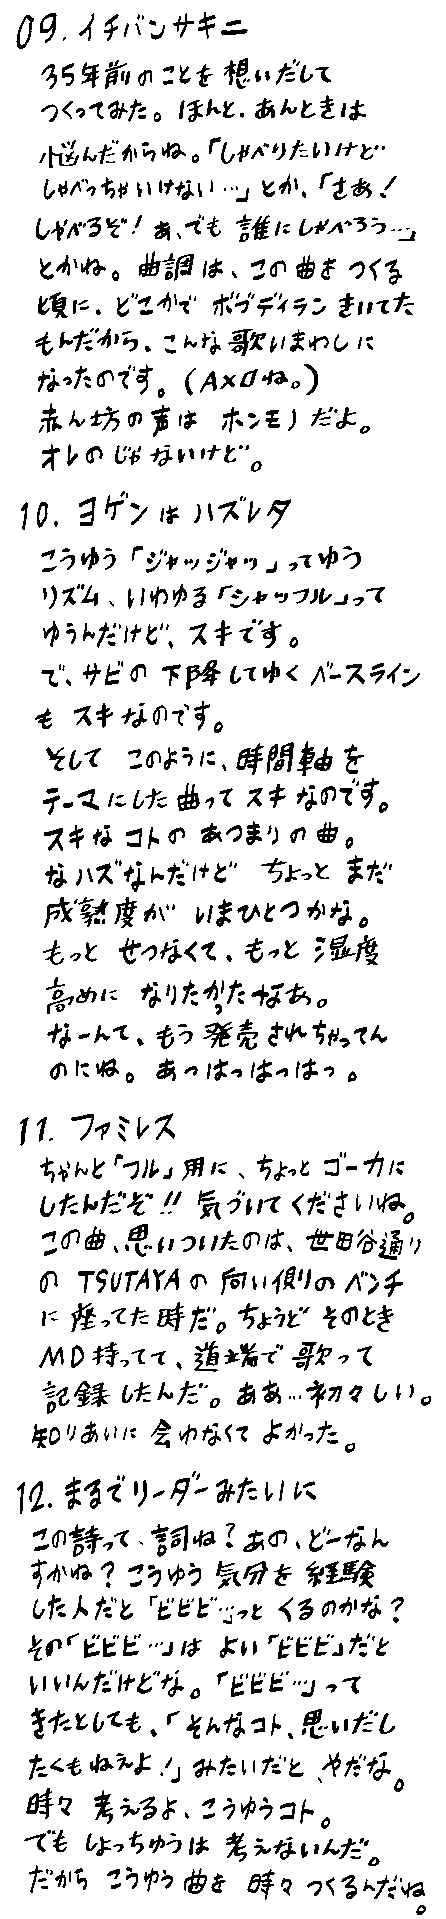 09. イチバンサキニ
35年前のことを想いだして
つくってみた。ほんと、あんときは
悩んだからね。「しゃべりたいけど
しゃべっちゃいけない…」とか、「さあ!
しゃべるぞ!あ、でも誰にしゃべろう…」
とかね。曲調は、この曲をつくる
頃に、どこかでボブディランきいてた
もんだから、こんな歌いまわしに
なったのです。(Aメロね。)
赤ん坊の声はホンモノだよ。
オレのじゃないけど。
10. ヨゲンはハズレタ
こうゆう「ジャッジャッ」ってゆう
リズム、いわゆる「シャッフル」って
ゆうんだけど、スキです。
で、サビの下降してゆくベースライン
もスキなのです。
そしてこのように、時間軸を
テーマにした曲ってスキなのです。
スキなコトのあつまりの曲。
なハズなんだけど ちょっとまだ
成熟度がいまひとつかな。
もっとせつなくて、もっと湿度
高めになりたかったなあ。
なーんて、もう発売されちゃってん
のにね。あっはっはっはっ。
11. ファミレス
ちゃんと「フル」用に、ちょっとゴーカに
したんだぞ!!気づいてくださいね。
この曲、思いついたのは、世田谷通り
のTSUTAYAの向い側のベンチ
に座ってた時だ。ちょうどそのとき
MD持ってて、道端で歌って
記録したんだ。ああ…初々しい。
知りあいに会わなくてよかった。
12. まるでリーダーみたいに
この詩って、詞ね?あの、どーなん
すかね?こうゆう気分を経験
した人だと「ビビビ…」っとくるのかな?
その「ビビビ…」はよい「ビビビ」だと
いいんだけどな。「ビビビ…」って
きたとしても、「そんなコト、思いだし
たくもねえよ!」みたいだと、やだな。
時々考えるよ、こうゆうコト。
でもしょっちゅうは考えないんだ。
だからこうゆう曲を時々つくるんだね。